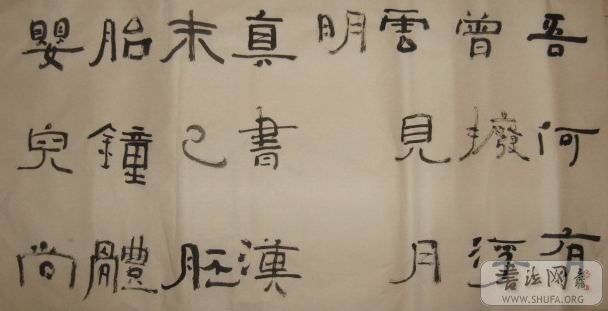 吾何有
曾撥
雲見月
明
真書漢
末已胚
胎鐘體
嬰兒尚
書法网
WWW.SHUFA.ORG